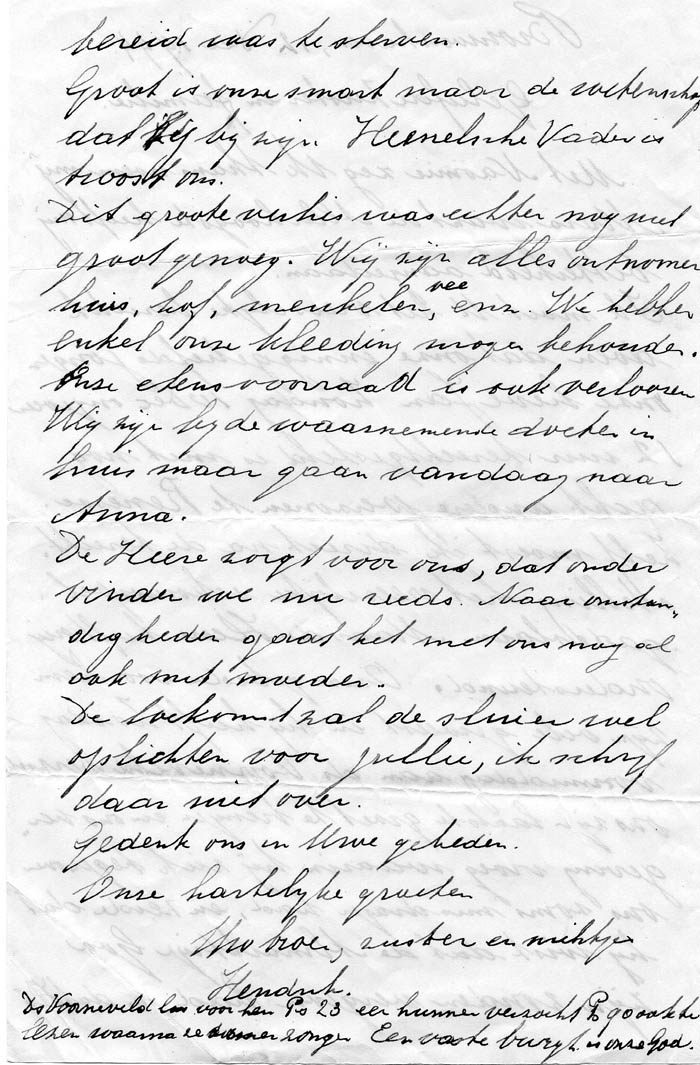 bereid was te sterven.
Groot is onze smart maar de wetenschap
dat Hij bij zijn Hemelsche Vader is
troost ons.
Dit groote verlies was echter nog niet
groot genoeg. Wij zijn alles ontnomen
huis, hof, meubelen, vee enz. We hebben
enkel onze kleeding mogen behouden.
Onze etensvoorraad is ook verloren
Wij zijn bij de waarnemende dokter in
huis maar gaan vandaag naar
Anna.
De Heere zorgt voor ons, dat onder
vinden we nu reeds. Naar omstan„
digheden gaat het met ons nog al
ook met moeder.
De toekomst zal de sluier wel
oplichten voor jullie, ik schrijf
daar niet over.
Gedenk ons in Uwe gebeden.
Onze hartelijke groeten
Uw broer, zuster en nichtje
Hendrik.
Ds Voorneveld las voor hen Ps 23 een hunner verzocht Ps 90 ook te
lezen waarna ze zongen Een vaste burgt is onze God.